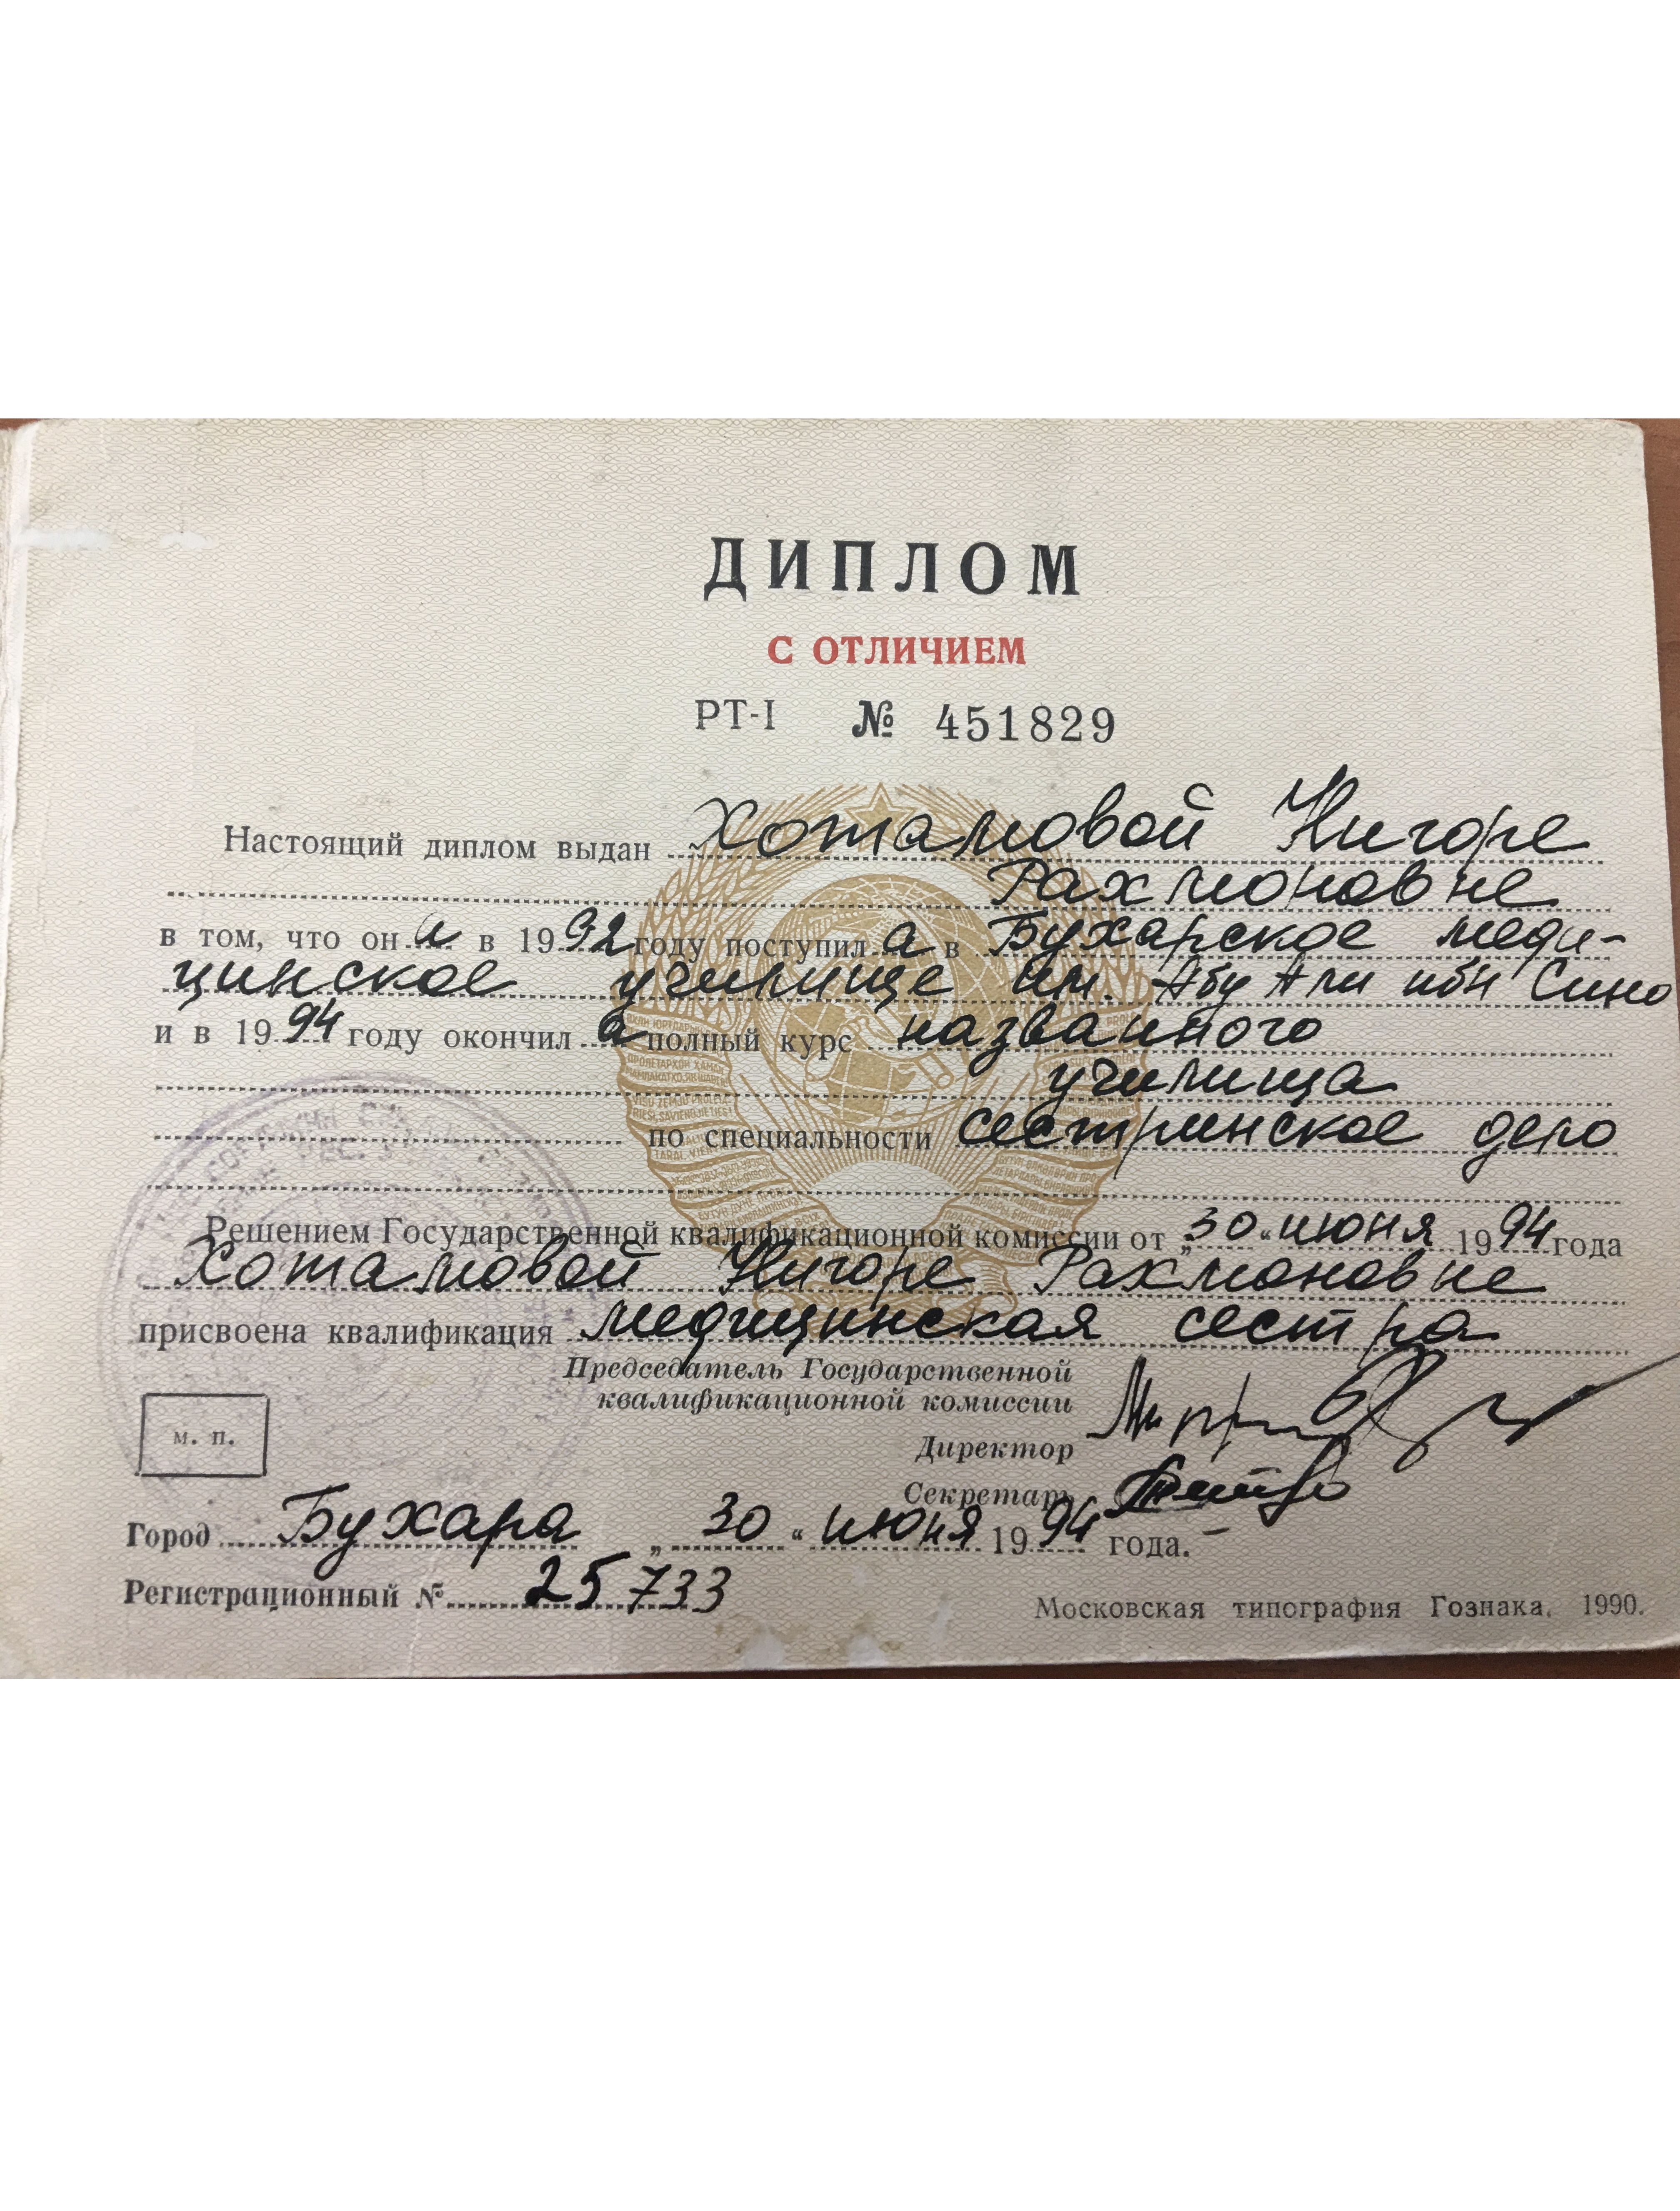 ДИПЛОМ
С ОТЛИЧИЕМ
РТ-I № 451829
Настоящий диплом выдан Хотамовой Нигоре
Рахмоновне
в том, что он а в 1992 году поступил а в Бухарское меди-
цинское училище им. Абу Али ибн Сино
и в 1994 году окончил а полный курс названного
училища
по специальности сестринское дело
Решением Государственной квалификационной комиссии от „30“ июня 1994 года
Хотамовой Нигоре Рахмоновне
присвоена квалификация медицинская сестра
Председатель Государственной
квалификационной комиссии
Директор
м. п.
Секретарь
Город Бухара „30“ июня 1994 года.
Регистрационный № 25733
Московская типография Гознака. 1990.